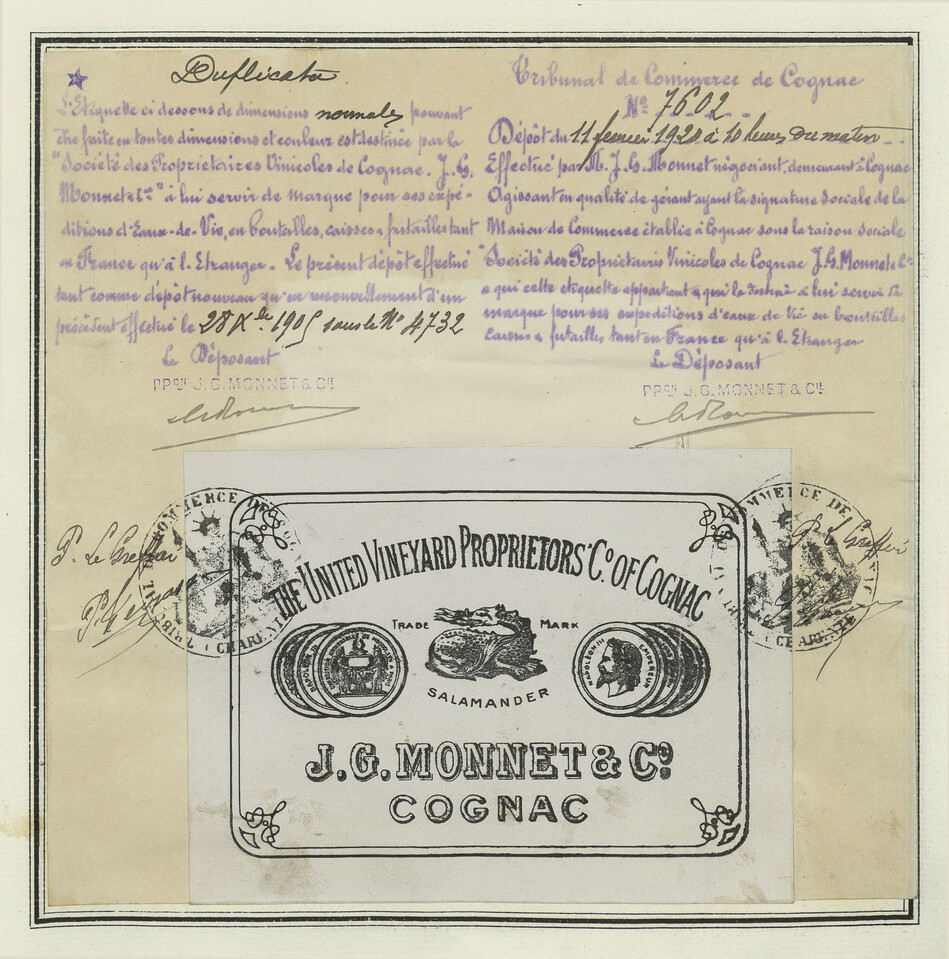 Duplicata
L'Etiquette ci dessous de dimensions normales pouvant
être faite en toutes dimensions et couleur est destinée par la
"Société des Propriétaires Vinicoles de Cognac. J. G.
Monnet & Cie" à lui servir de marque pour ses expé-
ditions d'Eaux-de-Vie, en bouteilles, caisses & futailles tant
en France qu'à l'Etranger. Le présent dépôt effectué
tant comme dépôt nouveau qu'en renouvellement d'un
précédent effectué le 28 Xbre 1905 sous le No 4732
Le Déposant
PPon J.G. MONNET & CIE
Tribunal de Commerce de Cognac
No 7602
Dépôt du 11 février 1920 à 10 heures du matin
Effectué par M. J. G. Monnet négociant, demeurant à Cognac
Agissant en qualité de gérant ayant la signature sociale de la
Maison de Commerce établie à Cognac sous la raison sociale
"Société des Propriétaires Vinicoles de Cognac J. G. Monnet & Cie
& qui cette etiquette appartient & qui la destine à lui servir de
marque pour ses expéditions d'eaux de Vie en bouteilles
caisses & futailles tant en France qu'à l'Etranger
Le Déposant
PPon J.G. MONNET & CIE
P. Le Greffier
P. le Greffier
TRIBAL DE COMMERCE DE
CHARENTE
COMMERCE DE
CHARENTE
THE UNITED VINEYARD PROPRIETORS' Co. OF COGNAC
TRADE MARK
SALAMANDER
NAPOLEON III EMPEREUR
J.G. MONNET & Co.
COGNAC